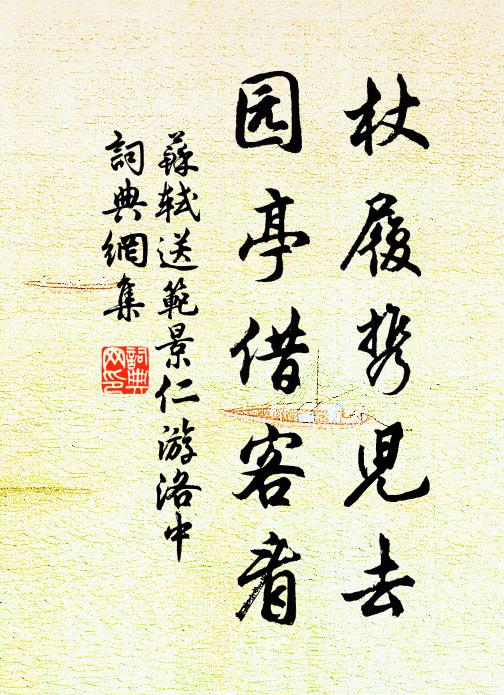 杖履携児去
园亭借客看
蘇軾送範景仁游洛中
詞典網集
詞典网印